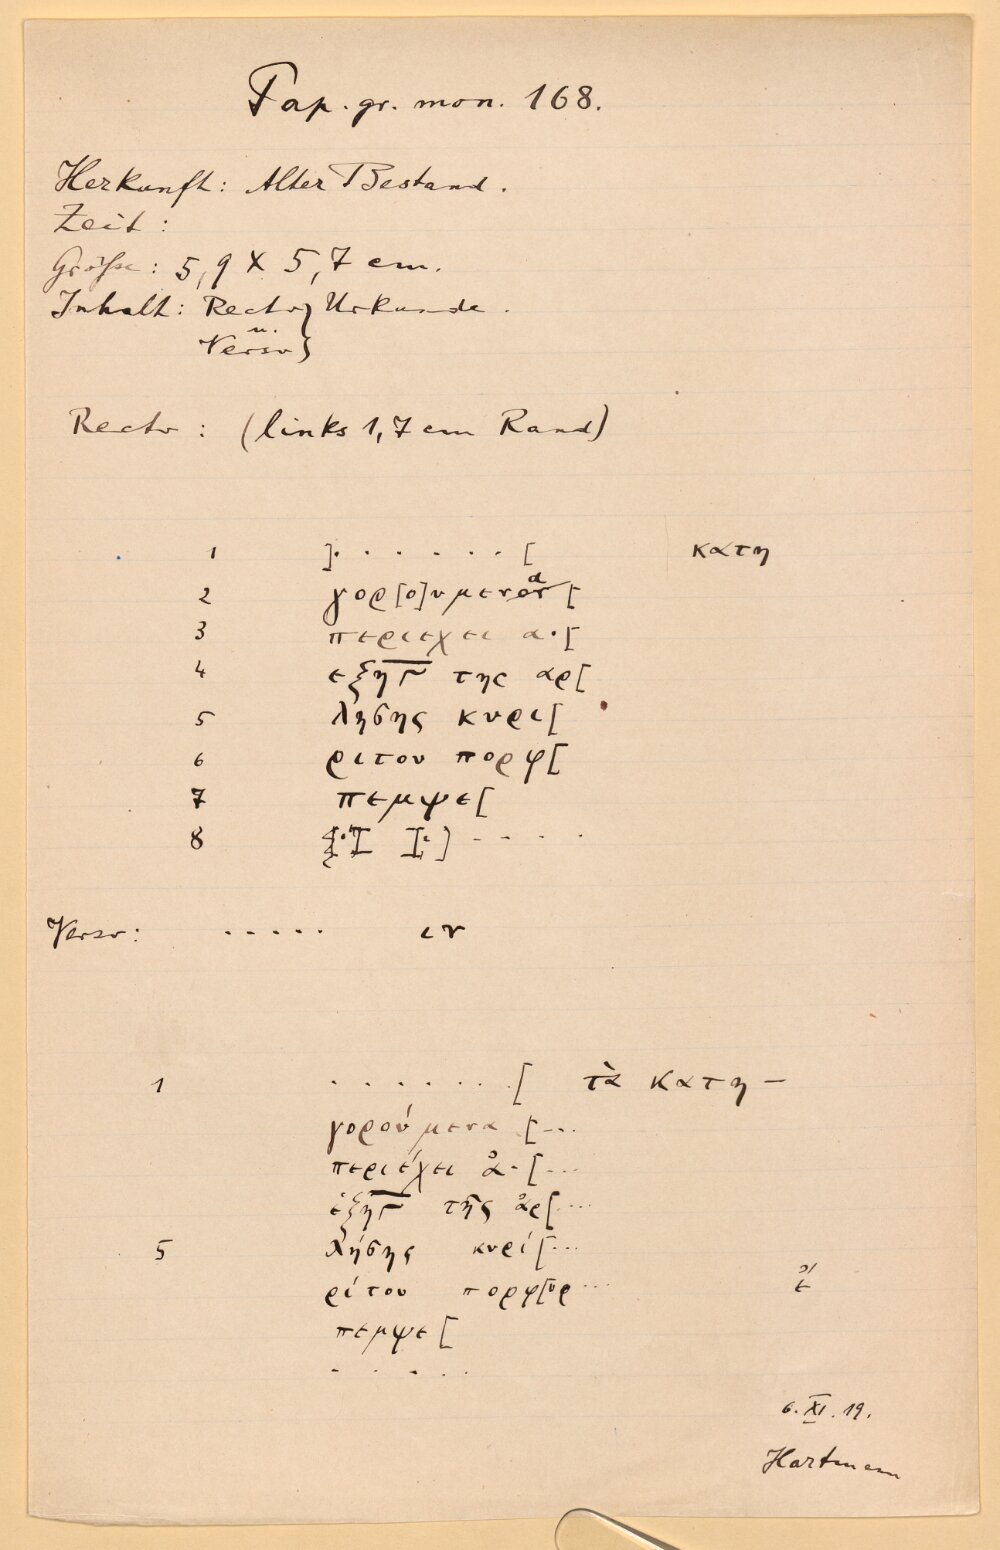 Pap. gr. mon. 168.
Herkunft: Alter Bestand.
Zeit:
Größe: 5,9 X 5,7 cm.
Inhalt: Recto } Urkunde.
u.
Verso }
Recto: (links 1,7 cm Rand)
1 ]. . . . . . [ κατη
2 γορ[ο]υμενον α [
3 περιεχει α.[
4 εξηΓ της αρ[
5 λησης κυρι[
6 ριτου πορφ[
7 πεμψε[
8
Verso: ..... ιν
1 . . . . . . .[ τὰ κατη-
γορούμενα [...
περιέχει ἀ.[...
ἐξηΓ τῆς ἀρ[...
5 λήσης κυρί[...
ρίτου πορφ[υρ...
ἔ
πεμψε[
. . . . .
6. XI. 19.
Hartmann